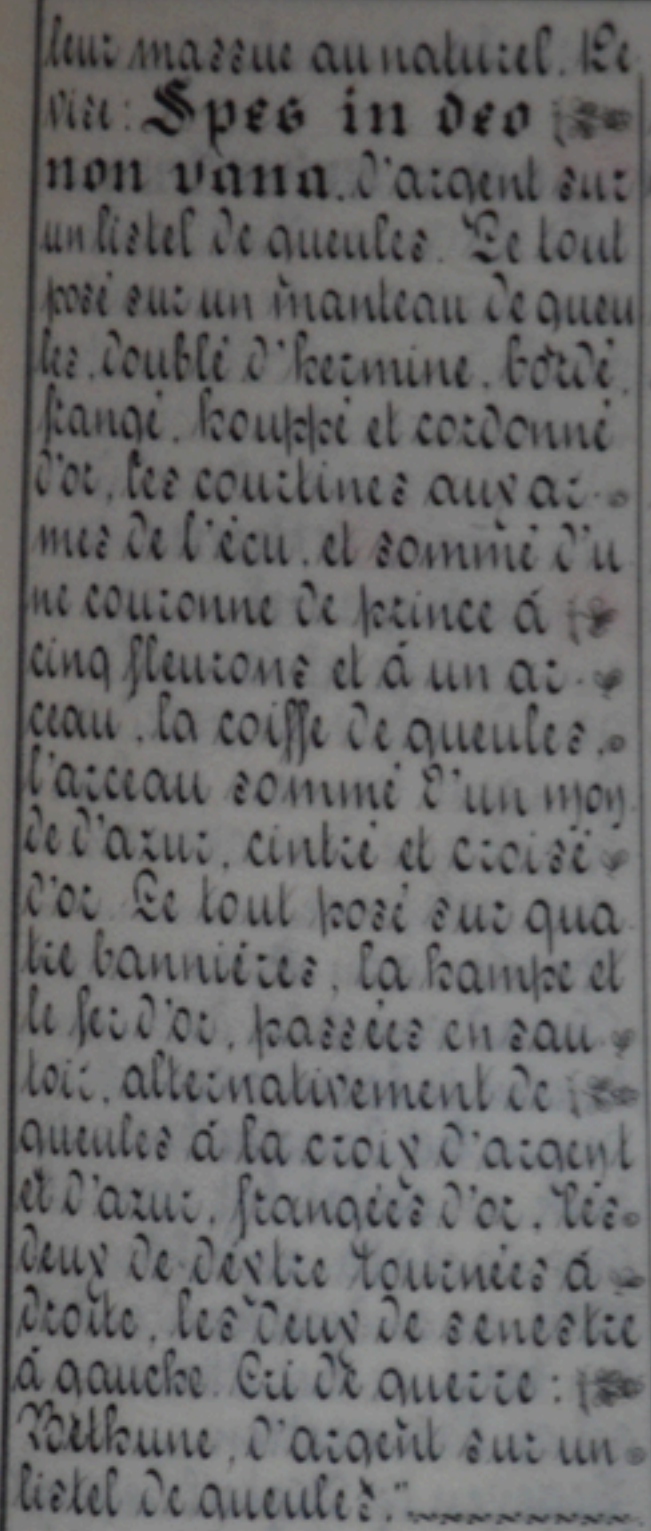 leur massue au naturel. De
vise: Spes in deo
non vana, d'argent sur
un listel de gueules. Le tout
posé sur un manteau de gueu
les, doublé d'hermine, bordé,
frangé, houppé et cordonné
d'or, les courtines aux ar-
mes de l'écu, et sommé d'u
ne couronne de prince á
cinq fleurons et á un ar-
ceau, la coiffe de gueules,
l'arceau sommé d'un mon
de d'azur, cintré et croisé
d'or. Le tout posé sur qua
tre banniéres, la hampe et
le fer d'or, passées en sau
toir, alternativement de
gueules á la croix d'argent
et d'azur, frangées d'or, les
deux de dextre tournées á
droite, les deux de senestre
á gauche. Cri de guerre:
Béthune, d'argent sur un
listel de gueules."